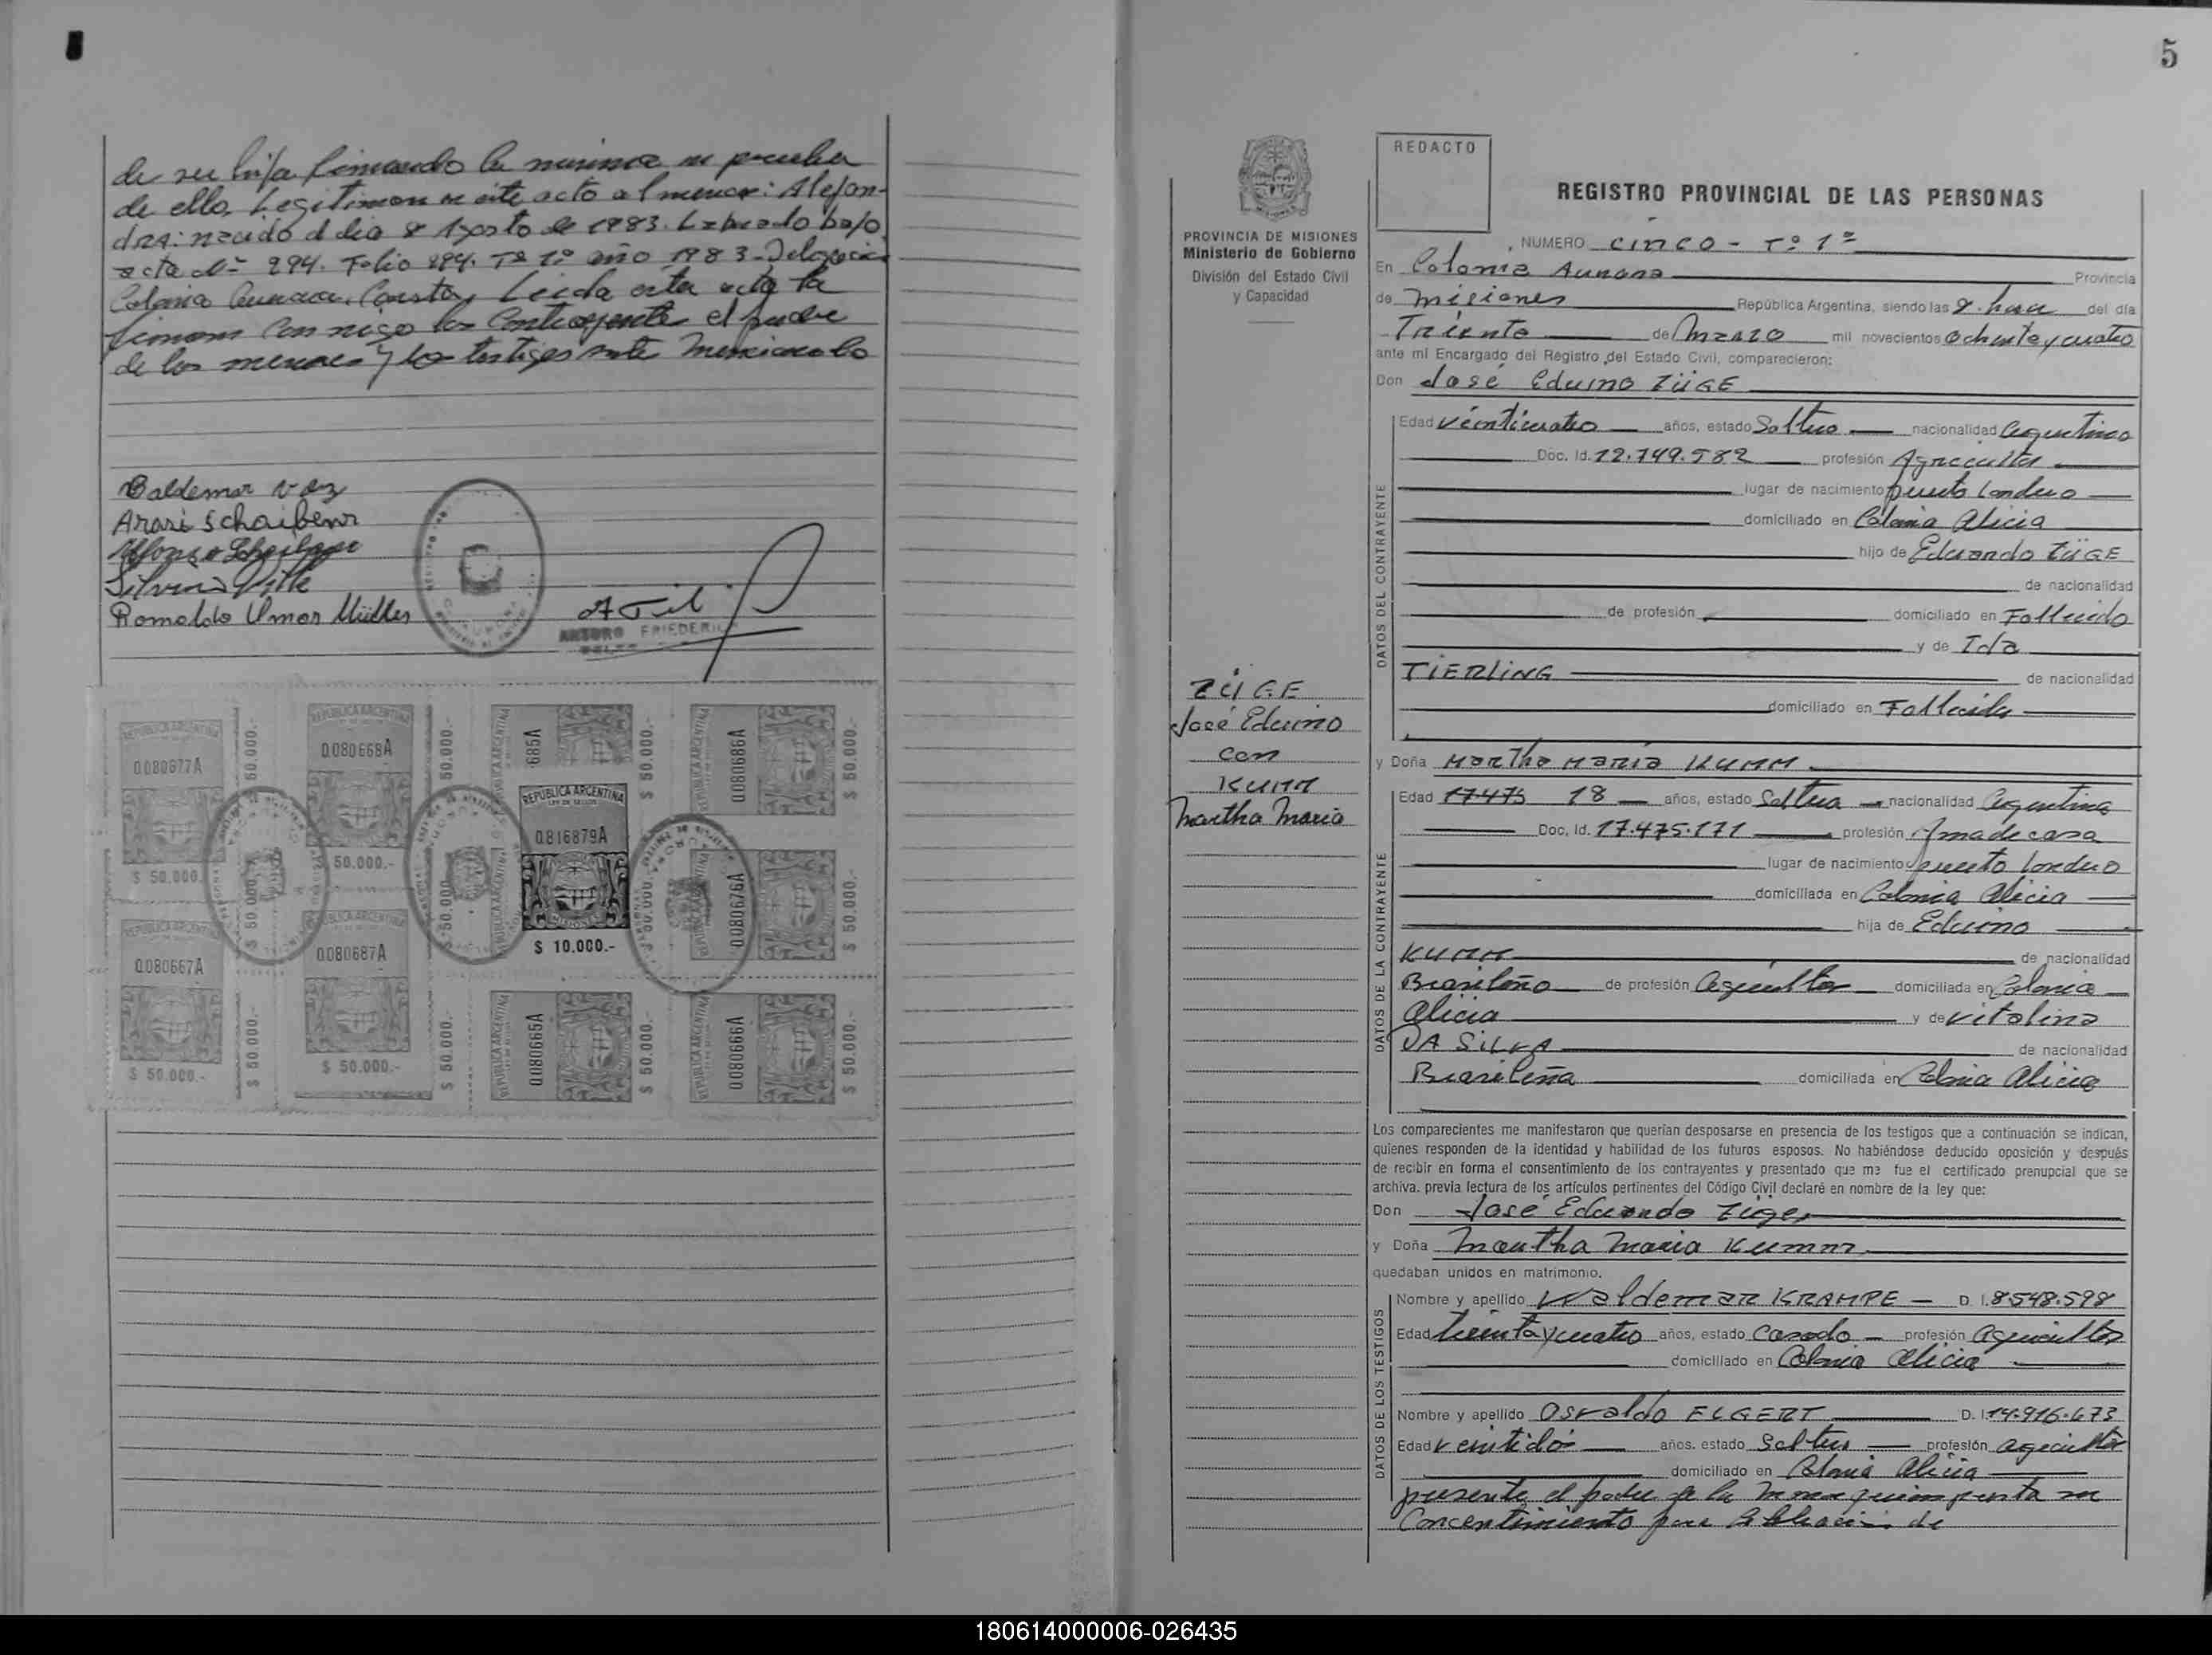 de su hija firmando la misma en prueba
de ello. Legitiman en este acto al menor: Alejan-
dra: nacido el dia 8 Agosto de 1983. Labrado bajo
acta Nº 294. Folio 294. Tº 1º año 1983 - Delegación
Colonia Aurora. Consta, Leida esta acta la
firman con migo los Contrayentes el padre
de los menores y los testigos ante mencionado
Baldemar Vaz
Arasi Schaibenr
Silvino
Romaldo Omar Müller
ARTURO FRIEDERI
REPUBLICA ARGENTINA
0080677A
$ 50.000.-
REPUBLICA ARGENTINA
0080668A
$ 50.000.-
685A
$ 50.000.-
REPUBLICA ARGENTINA
0080686A
$ 50.000.-
REPUBLICA ARGENTINA
0816879A
MISIONES
$ 10.000.-
REPUBLICA ARGENTINA
0080676A
$ 50.000.-
REPUBLICA ARGENTINA
0080667A
$ 50.000.-
REPUBLICA ARGENTINA
0080687A
$ 50.000.-
REPUBLICA ARGENTINA
0080665A
$ 50.000.-
REPUBLICA ARGENTINA
0080666A
$ 50.000.-
5
PROVINCIA DE MISIONES
Ministerio de Gobierno
División del Estado Civil
y Capacidad
ZÜGE
José Eduino
con
KUMM
Martha Maria
REDACTO
REGISTRO PROVINCIAL DE LAS PERSONAS
NUMERO cinco - Tº 1º
En Colonia Aurora Provincia
de Misiones República Argentina, siendo las 8 hora del día
Treinta de Marzo mil novecientos Ochenta y cuatro
ante mi Encargado del Registro del Estado Civil, comparecieron:
Don José Eduino ZÜGE
DATOS DEL CONTRAYENTE
Edad veinticuatro años, estado Soltero nacionalidad Argentino
Doc. Id. 12.749.582 profesión Agricultor
lugar de nacimiento puerto Londero
domiciliado en Colonia Alicia
hijo de Eduardo ZÜGE
de nacionalidad
de profesión domiciliado en Fallecido
y de Ida
TIERLING de nacionalidad
domiciliado en Fallecida
y Doña Martha Maria KUMM
DATOS DE LA CONTRAYENTE
Edad 17475 18 años, estado Soltera nacionalidad Argentina
Doc. Id. 17.475.171 profesión Ama de casa
lugar de nacimiento puerto Londero
domiciliada en Colonia Alicia
hija de Eduino
KUMM de nacionalidad
Brasileño de profesión Agricultor domiciliada en Colonia
Alicia y de Vitalina
DA SILVA de nacionalidad
Brasileña domiciliada en Colonia Alicia
Los comparecientes me manifestaron que querían desposarse en presencia de los testigos que a continuación se indican,
quienes responden de la identidad y habilidad de los futuros esposos. No habiéndose deducido oposición y después
de recibir en forma el consentimiento de los contrayentes y presentado que me fue el certificado prenupcial que se
archiva. previa lectura de los artículos pertinentes del Código Civil declaré en nombre de la ley que:
Don José Eduardo Züge
y Doña Martha Maria Kumm
quedaban unidos en matrimonio.
DATOS DE LOS TESTIGOS
Nombre y apellido Waldemar KRAMPE D. I. 8.548.598
Edad treinta y cuatro años, estado Casado profesión Agricultor
domiciliado en Colonia Alicia
Nombre y apellido Osvaldo ELGERT D. I. 14.916.673
Edad veintidos años. estado Soltero profesión agricultor
domiciliado en Colonia Alicia
presente el padre de la menor quien presta su
Concentimiento para la celebración de
180614000006-026435